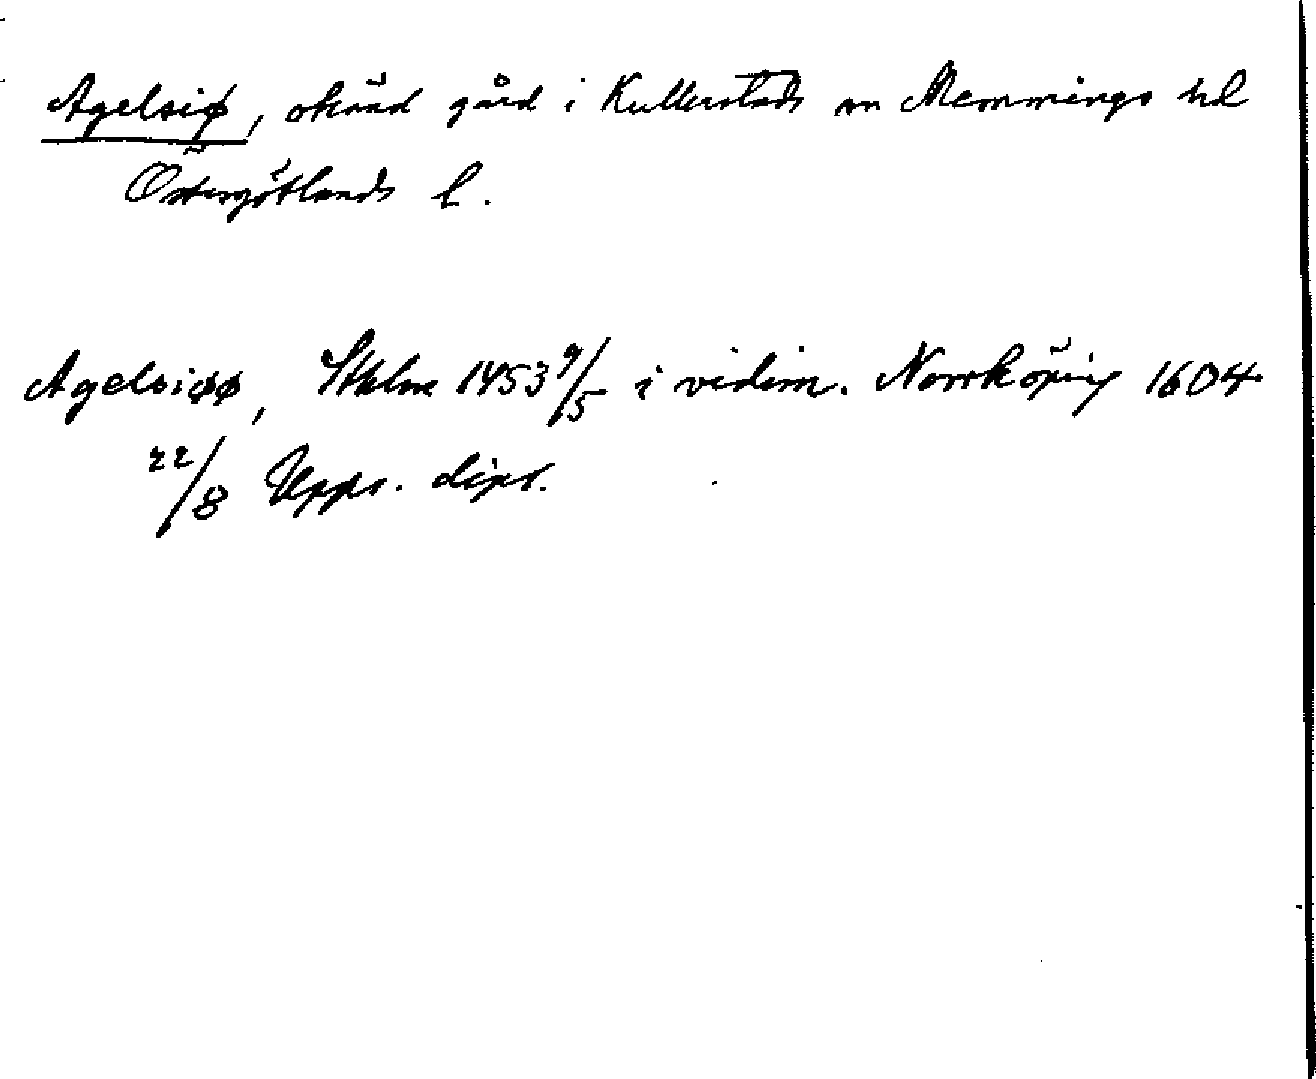 Agelsiø, okänd gård i Kullerstads sn Memmings hd
Östergötlands l.
Agelsiøø, Sthlm 1453 9/5 i vidim. Norrköping 1604
22/8 Upps. dipl.